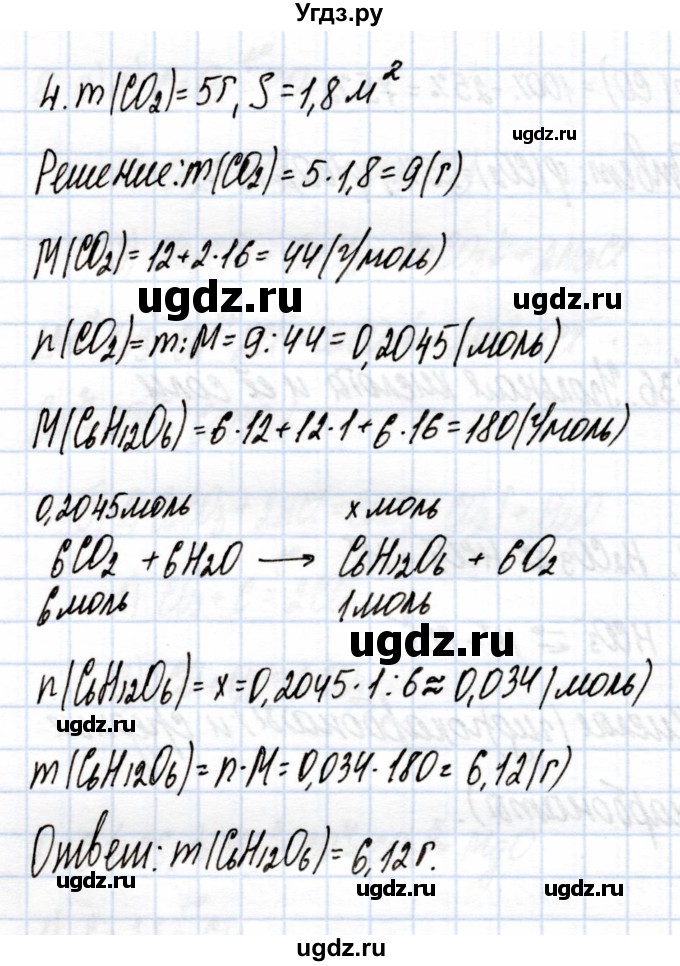 Угдз.ру
4. m(CO₂) = 5г, S = 1,8 м²
ugdz.ru
Решение: m(CO₂) = 5·1,8 = 9(г)
M(CO₂) = 12 + 2·16 = 44(г/моль)
ugdz.ru
ugdz.ru
n(CO₂) = m:M = 9:44 = 0,2045(моль)
M(C₆H₁₂O₆) = 6·12+12·1+6·16 = 180(г/моль)
0,2045моль x моль
6CO₂ + 6H₂O → C₆H₁₂O₆ + 6O₂
6моль 1моль
ugdz.ru
ugdz.ru
n(C₆H₁₂O₆) = x = 0,2045·1:6 ≈ 0,034(моль)
ugdz.ru
m(C₆H₁₂O₆) = n·M = 0,034·180 = 6,12(г)
ugdz.ru
Ответ: m(C₆H₁₂O₆) = 6,12г.
ugdz.ru
ugdz.ru
ugdz.ru